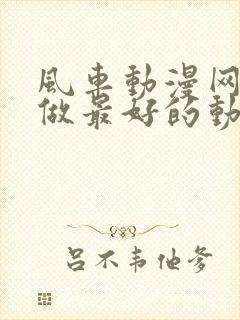 風車動漫网
做最好的動
吕不韦他爹